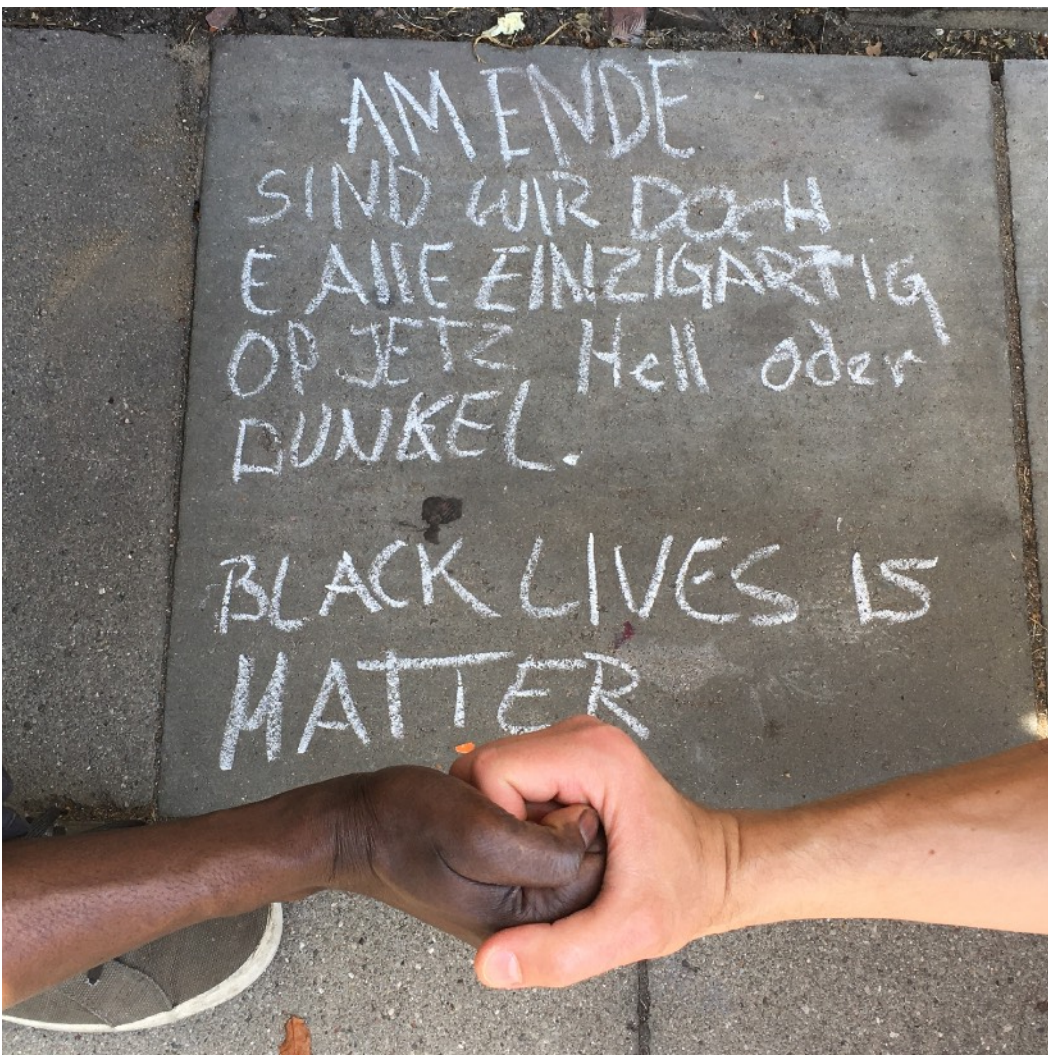 AM ENDE
SIND WIR DOCH
E AllE EINZIGARTIG
OP JETZ Hell oder
DUNKEL.
BLACK LIVES IS
MATTER